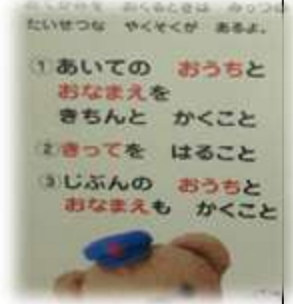 たいせつな やくそくが あるよ。
①あいての おうちと
おなまえを
きちんと かくこと
②きってを はること
③じぶんの おうちと
おなまえも かくこと